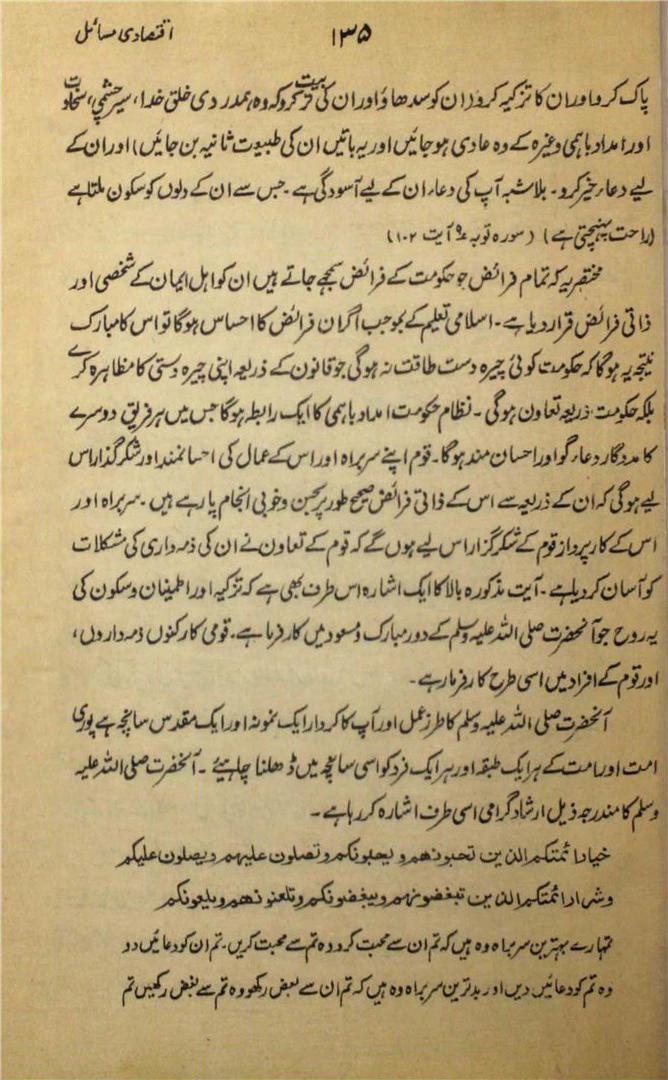 ۱۳۵
اقتصادی مسائل
پاک کرو اور ان کا تزکیہ کرو (ان کو سدھاؤ اور ان کی تربیت کرو کہ وہ ہمدردی خلق خدا، سیر چشمی، سخاوت
اور امداد باہمی وغیرہ کے وہ عادی ہو جائیں اور یہ باتیں ان کی طبیعت ثانیہ بن جائیں) اور ان کے
لیے دعاء خیر کرو۔ بلاشبہ آپ کی دعاء ان کے لیے آسودگی ہے۔ جس سے ان کے دلوں کو سکون ملتا ہے
(راحت پہنچتی ہے) (سورہ توبہ ۹ آیت ۱۰۲)
مختصر یہ کہ تمام فرائض جو حکومت کے فرائض سمجھے جاتے ہیں ان کو اہل ایمان کے شخصی اور
ذاتی فرائض قرار دیا ہے۔ اسلامی تعلیم کے بموجب اگر ان فرائض کا احساس ہوگا تو اس کا مبارک
نتیجہ یہ ہوگا کہ حکومت کوئی چیرہ دست طاقت نہ ہوگی جو قانون کے ذریعہ اپنی چیرہ دستی کا مظاہرہ کرے
بلکہ حکومت ذریعہ تعاون ہوگی۔ نظام حکومت امداد باہمی کا ایک رابطہ ہوگا جس میں ہر فریق دوسرے
کا مددگار دعاء گو اور احسان مند ہوگا۔ قوم اپنے سربراہ اور اس کے عمال کی احسانمند اور شکر گذار اس
لیے ہوگی کہ ان کے ذریعہ سے اس کے ذاتی فرائض صحیح طور پر بحسن وخوبی انجام پا رہے ہیں۔ سربراہ اور
اس کے کار پرداز قوم کے شکر گزار اس لیے ہوں گے کہ قوم کے تعاون نے ان کی ذمہ داری کی مشکلات
کو آسان کر دیا ہے۔ آیت مذکورہ بالا کا ایک اشارہ اس طرف بھی ہے کہ تزکیہ اور اطمینان و سکون کی
یہ روح جو آنحضرت صلی اللہ علیہ وسلم کے دور مبارک و مسعود میں کارفرما ہے۔ قومی کارکنوں ذمہ داروں،
اور قوم کے افراد میں اسی طرح کارفرما رہے۔
آنحضرت صلی اللہ علیہ وسلم کا طرز عمل اور آپ کا کردار ایک نمونہ اور ایک مقدس سانچہ ہے پوری
امت اور امت کے ہر ایک طبقہ اور ہر ایک فرد کو اسی سانچہ میں ڈھلنا چاہیئے۔ آنحضرت صلی اللہ علیہ
وسلم کا مندرجہ ذیل ارشاد گرامی اسی طرف اشارہ کر رہا ہے۔
خیار ائمتکم الذین تحبونهم و یحبونکم و تصلون علیهم و یصلون علیکم
و شرار ائمتکم الذین تبغضونهم و یبغضونکم و تلعنونهم و یلعنونکم
تمہارے بہترین سربراہ وہ ہیں کہ تم ان سے محبت کرو وہ تم سے محبت کریں۔ تم ان کو دعائیں دو
وہ تم کو دعائیں دیں اور بدترین سربراہ وہ ہیں کہ تم ان سے بغض رکھو وہ تم سے بغض رکھیں تم